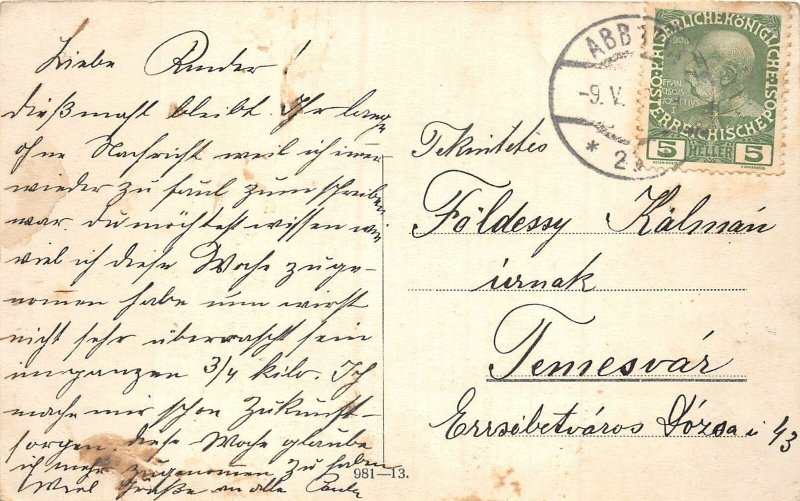 Liebe Kinder!
Dießmahl bleibt Ihr lange
ohne Nachricht weil ich immer
wieder zu faul zum schreiben
war. Du möchtest wissen wie
viel ich diese Woche zuge-
nomen habe nun wirst
nicht sehr überrascht sein
imganzen 3/4 kilo. Ich
mache mir schon Zukunft-
sorgen. diese Woche glaube
ich mehr zugenommen zu haben
Viel Grüße an alle
981—13.
ABB
-9. V.
* 2
KAISERLICHE KÖNIGLICHE
ÖSTERREICHISCHE POST
1908
FRAN
CISCUS
IOSEPHVS
5 HELLER 5
Tekintetes
Földessy Kálmán
úrnak
Temesvár
Errsébetváros Dózsa i 43